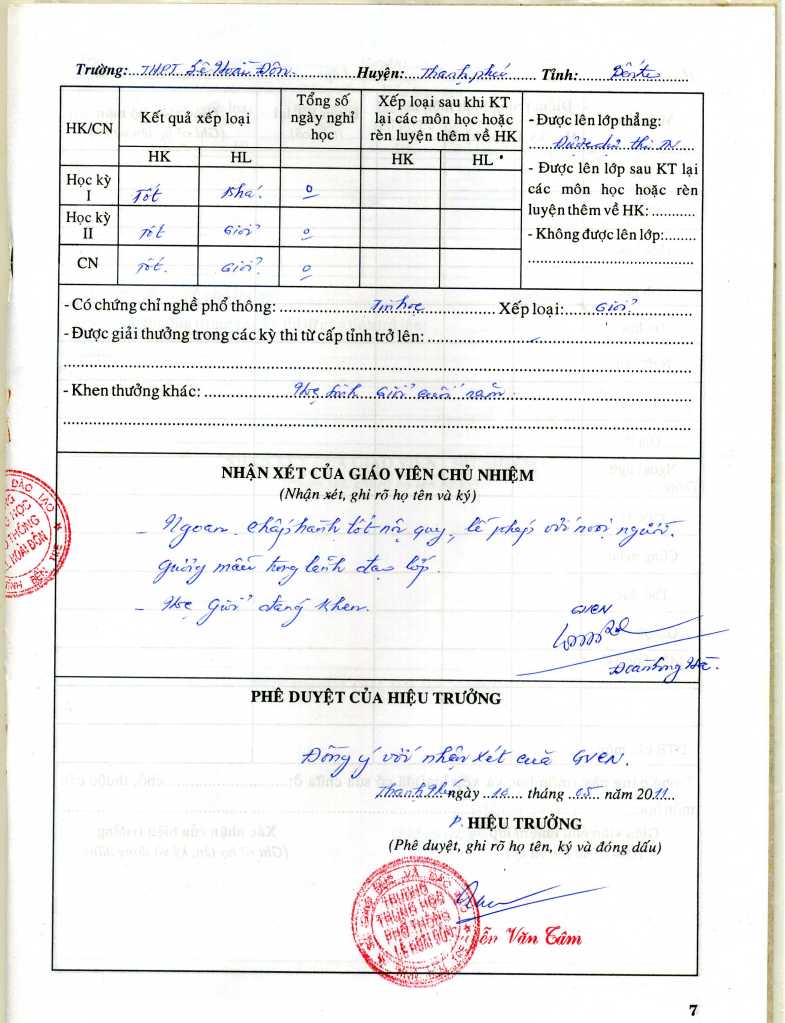 Trường: THPT Lê Hoài Đôn Huyện: Thạnh phú Tỉnh: Bến tre
HK/CN
Kết quả xếp loại
Tổng số ngày nghỉ học
Xếp loại sau khi KT lại các môn học hoặc rèn luyện thêm về HK
HK HL HK HL
Học kỳ I Tốt Khá. 0
Học kỳ II Tốt Giỏi 0
CN Tốt. Giỏi. 0
- Được lên lớp thẳng:
Được dự thi TN
- Được lên lớp sau KT lại
các môn học hoặc rèn
luyện thêm về HK: ...........
- Không được lên lớp:........
- Có chứng chỉ nghề phổ thông: Tin học Xếp loại: Giỏi
- Được giải thưởng trong các kỳ thi từ cấp tỉnh trở lên:
- Khen thưởng khác: Học sinh Giỏi cuối năm.
NHẬN XÉT CỦA GIÁO VIÊN CHỦ NHIỆM
(Nhận xét, ghi rõ họ tên và ký)
- Ngoan. Chấp hành tốt nội quy, lễ phép với mọi người.
gương mẫu trong lãnh đạo lớp.
- Học Giỏi đáng khen.
GVCN
PHÊ DUYỆT CỦA HIỆU TRƯỞNG
Đồng ý với nhận xét của GVCN.
Thạnh Phú ngày tháng 05 năm 2011
P. HIỆU TRƯỞNG
(Phê duyệt, ghi rõ họ tên, ký và đóng dấu)
TRƯỜNG
TRUNG HỌC
PHỔ THÔNG
LÊ HOÀI ĐÔN
ễn Văn Tâm
7